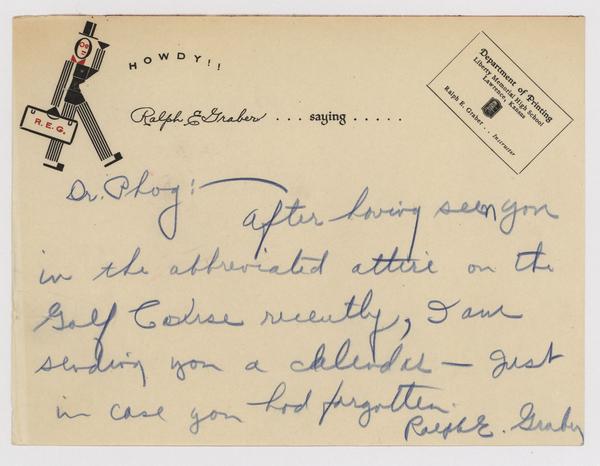 HOWDY!!
Ralph E. Graber ... saying .....
R.E.G.
Department of Printing
Liberty Memorial High School
Lawrence, Kansas
Ralph E. Graber . . Instructor
Dr. Phog:
After having seen you
in the abbreviated attire on the
Golf Course recently, I am
sending you a calendar — Just
in case you had forgotten.
Ralph E. Graber